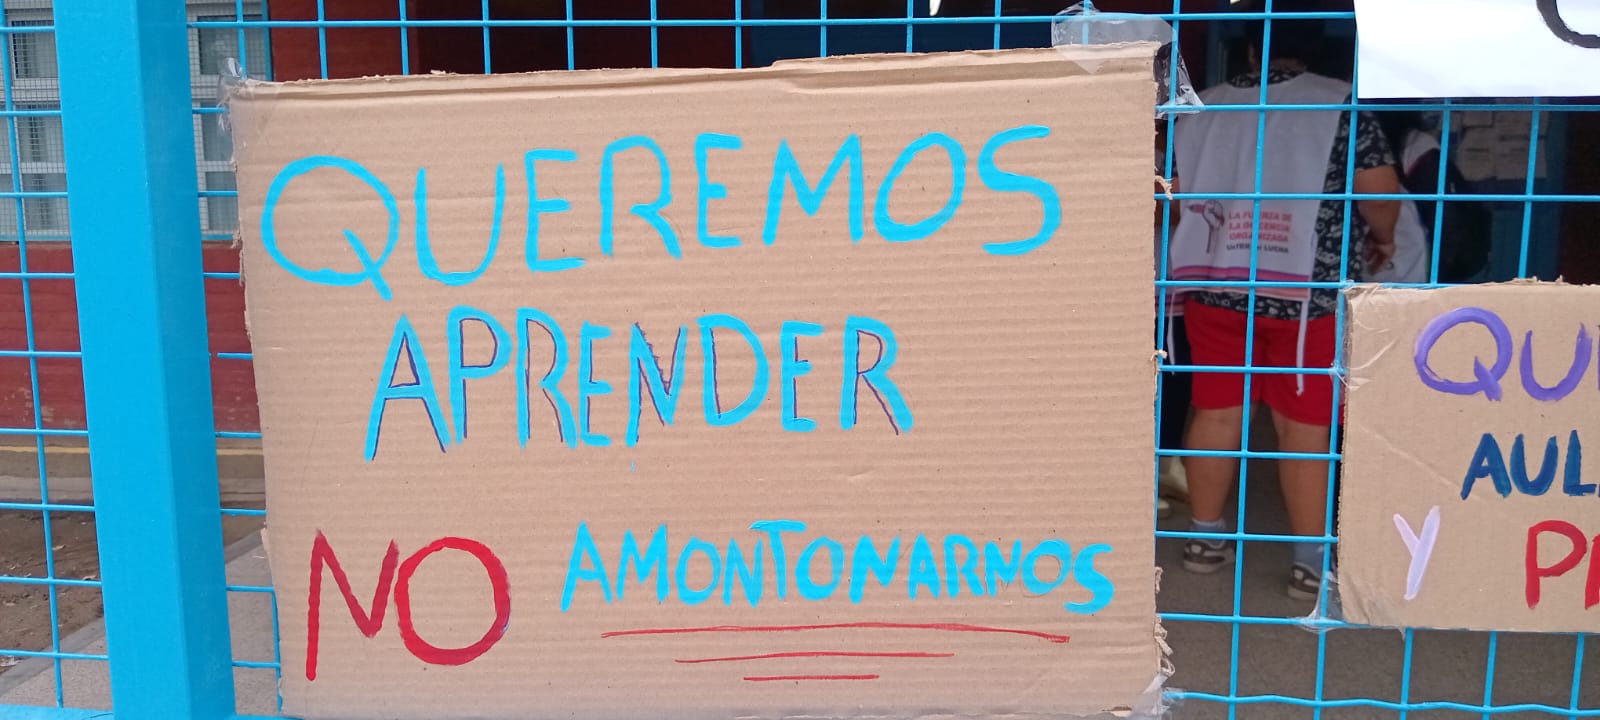 QUEREMOS
APRENDER
NO AMONTONARNOS
LA FUERZA DE
LA DOCENCIA
ORGANIZADA
LUCHA
QU
AUL
Y